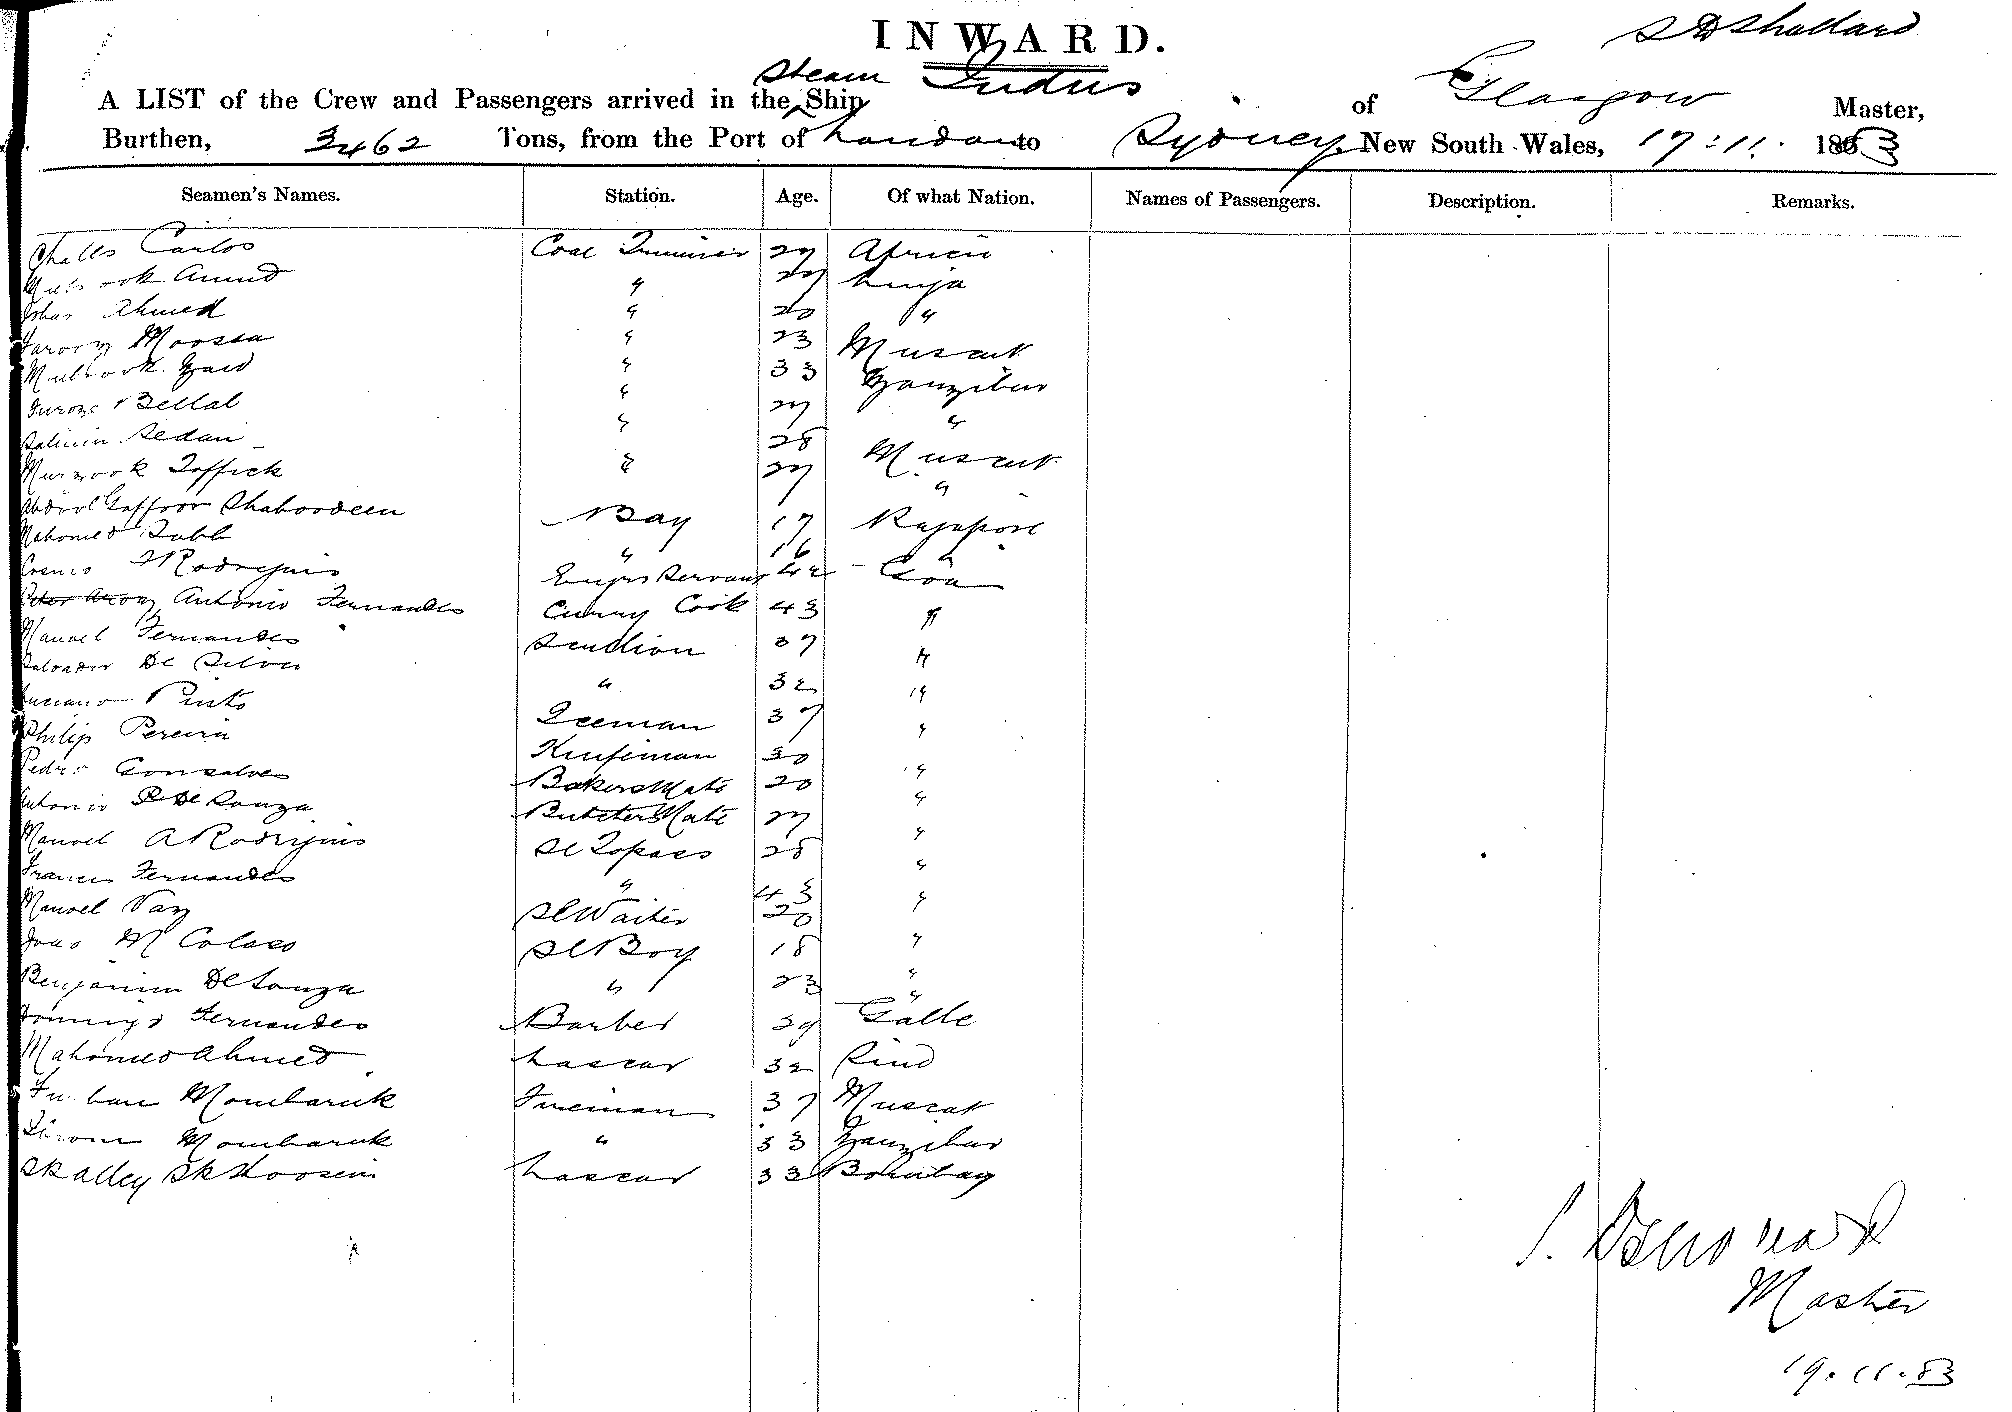 INWARD.
S D Shallard
A LIST of the Crew and Passengers arrived in the Steam Ship Indus of Glasgow Master,
Burthen, 3462 Tons, from the Port of London to Sydney New South Wales, 17:11. 1883
Seamen's Names. Station. Age. Of what Nation. Names of Passengers. Description. Remarks.
Carlos Coal Trimmer 27 Africa
27 Linja
Ahmed " 20 "
Moossa " 23 Muscat
Mubrook Zaid " 33 Zanzibar
Furoze Bellal " 27 "
Salimin Sedan " 28 Muscat
Murzook Toffick " 27 "
Abdool Gaffoor Shaboodeen Boy 17 Rajapore
Mahomed " 16 "
Cosmo Rodrigues Engrs Servant 42 Goa
Antonio Fernandes Curry Cook 43 "
Manoel Fernandes Scullion 37 "
Salvador De Silva " 32 "
Luciano Pinto 37 "
Philip Pereira Knifeman 30 "
Pedro Gonsalves Bakers Mate 20 "
Antonio De Souza Butchers Mate 27 "
Manoel A Rodrigues Sl Topass 28 "
Francis Fernandes " 43 "
Manoel Vaz Sl Waiter 20 "
Joao M Colaco Sl Boy 18 "
Benjamin De Souza " 23 "
Domingo Fernandes Barber 39 Galle
Mahomed Ahmed Lascar 32 Sind
Mombaruk Fireman 37 Muscat
Mombaruk " 33 Zanzibar
Sk Alley Sk Hoosein Lascar 33 Bombay
Master
19.11.83